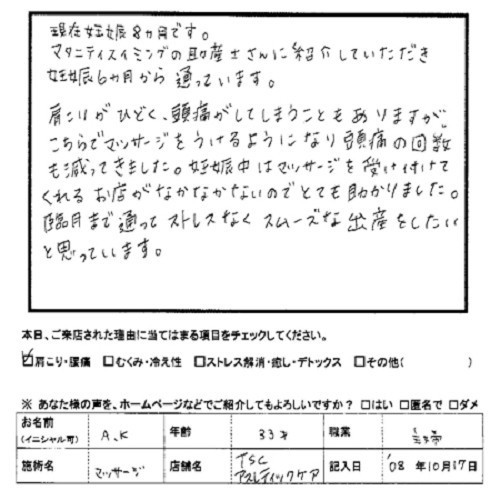 現在妊娠8カ月です。
マタニティスイミングの助産士さんに紹介していただき
妊娠6カ月から通っています。
肩こりがひどく、頭痛がしてしまうこともありますが
こちらでマッサージをうけるようになり頭痛の回数
も減ってきました。妊娠中はマッサージを受け付けて
くれるお店がなかなかないのでとても助かりました。
臨月まで通ってストレスなくスムーズな出産をしたい
と思っています。
本日、ご来店された理由に当てはまる項目をチェックしてください。
☑肩こり・腰痛 □むくみ・冷え性 □ストレス解消・癒し・デトックス □その他( )
※ あなた様の声を、ホームページなどでご紹介してもよろしいですか? □はい □匿名で □ダメ
お名前 (イニシャル可) A.K 年齢 33才 職業
施術名 マッサージ 店舗名 TSC アスレティックケア 記入日 '08 年10月17日